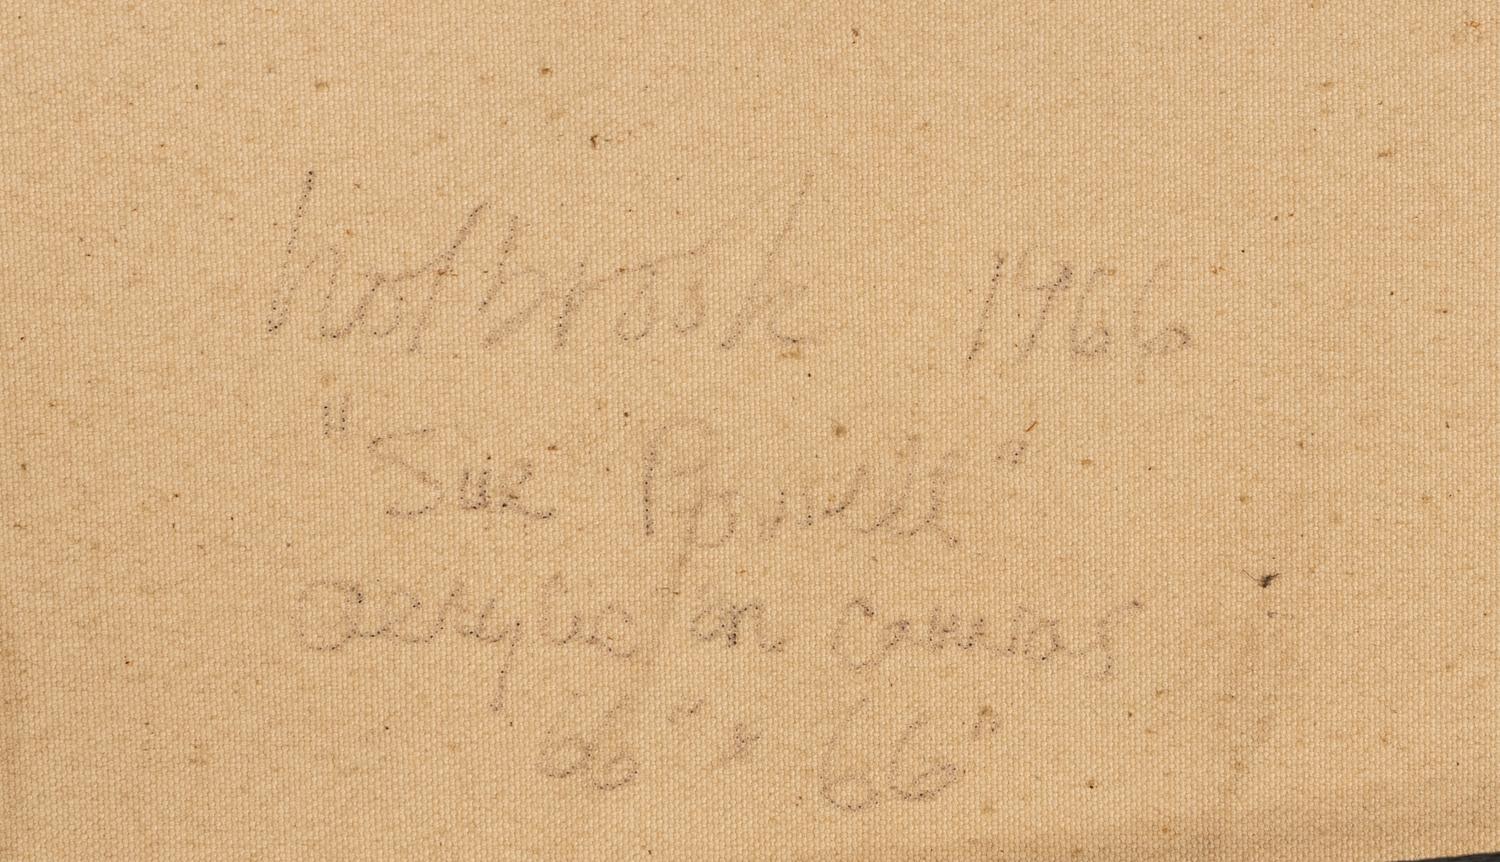 Holbrook 1966
"Sue Powell"
acrylic on canvas
66" x 66"